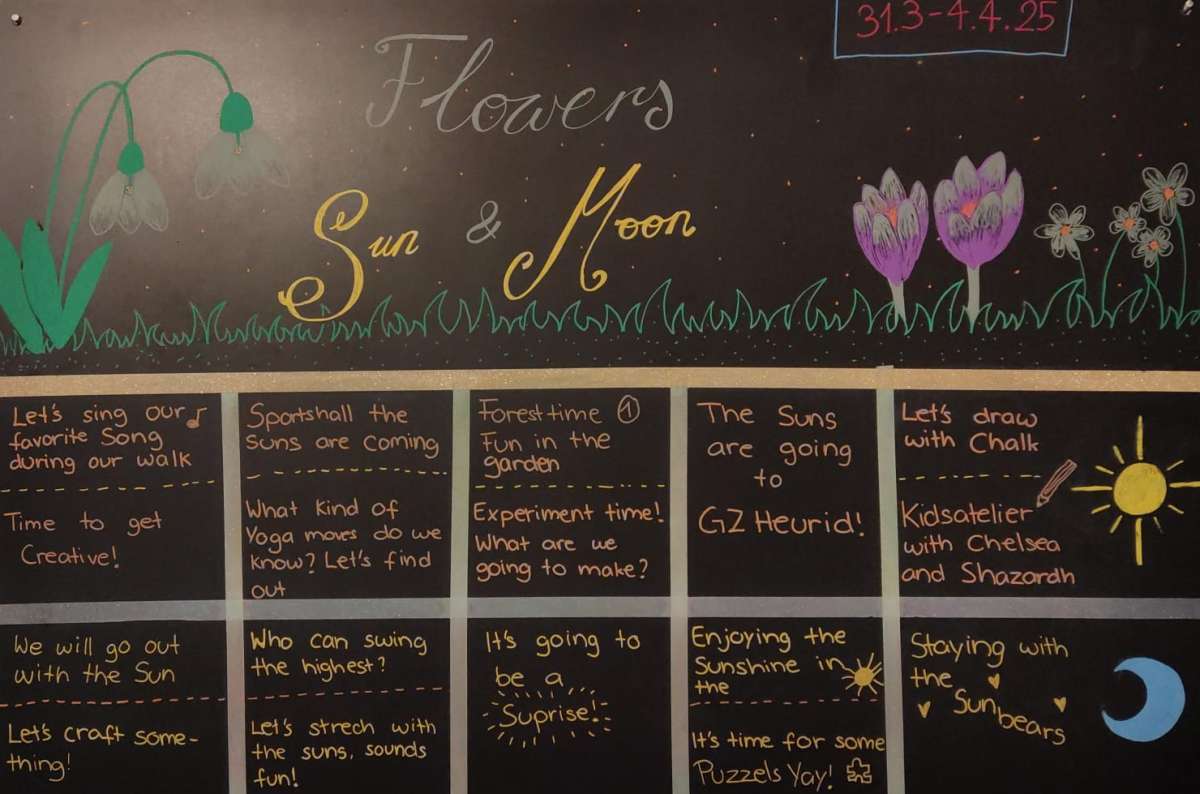 31.3-4.4.25
Flowers
Sun & Moon
Let's sing our
favorite Song
during our walk
Time to get
Creative!
Sportshall the
suns are coming
What kind of
Yoga moves do we
know? Let's find
out
Forest time 1
Fun in the
garden
Experiment time!
What are we
going to make?
The Suns
are going
to
GZ Heurid!
Let's draw
with Chalk
Kidsatelier
with Chelsea
and Shazardh
We will go out
with the Sun
Let's craft some-
thing!
Who can swing
the highest?
Let's strech with
the suns, sounds
fun!
It's going to
be a
Suprise!
Enjoying the
Sunshine in
the
It's time for some
Puzzels Yay!
Staying with
the
Sunbears